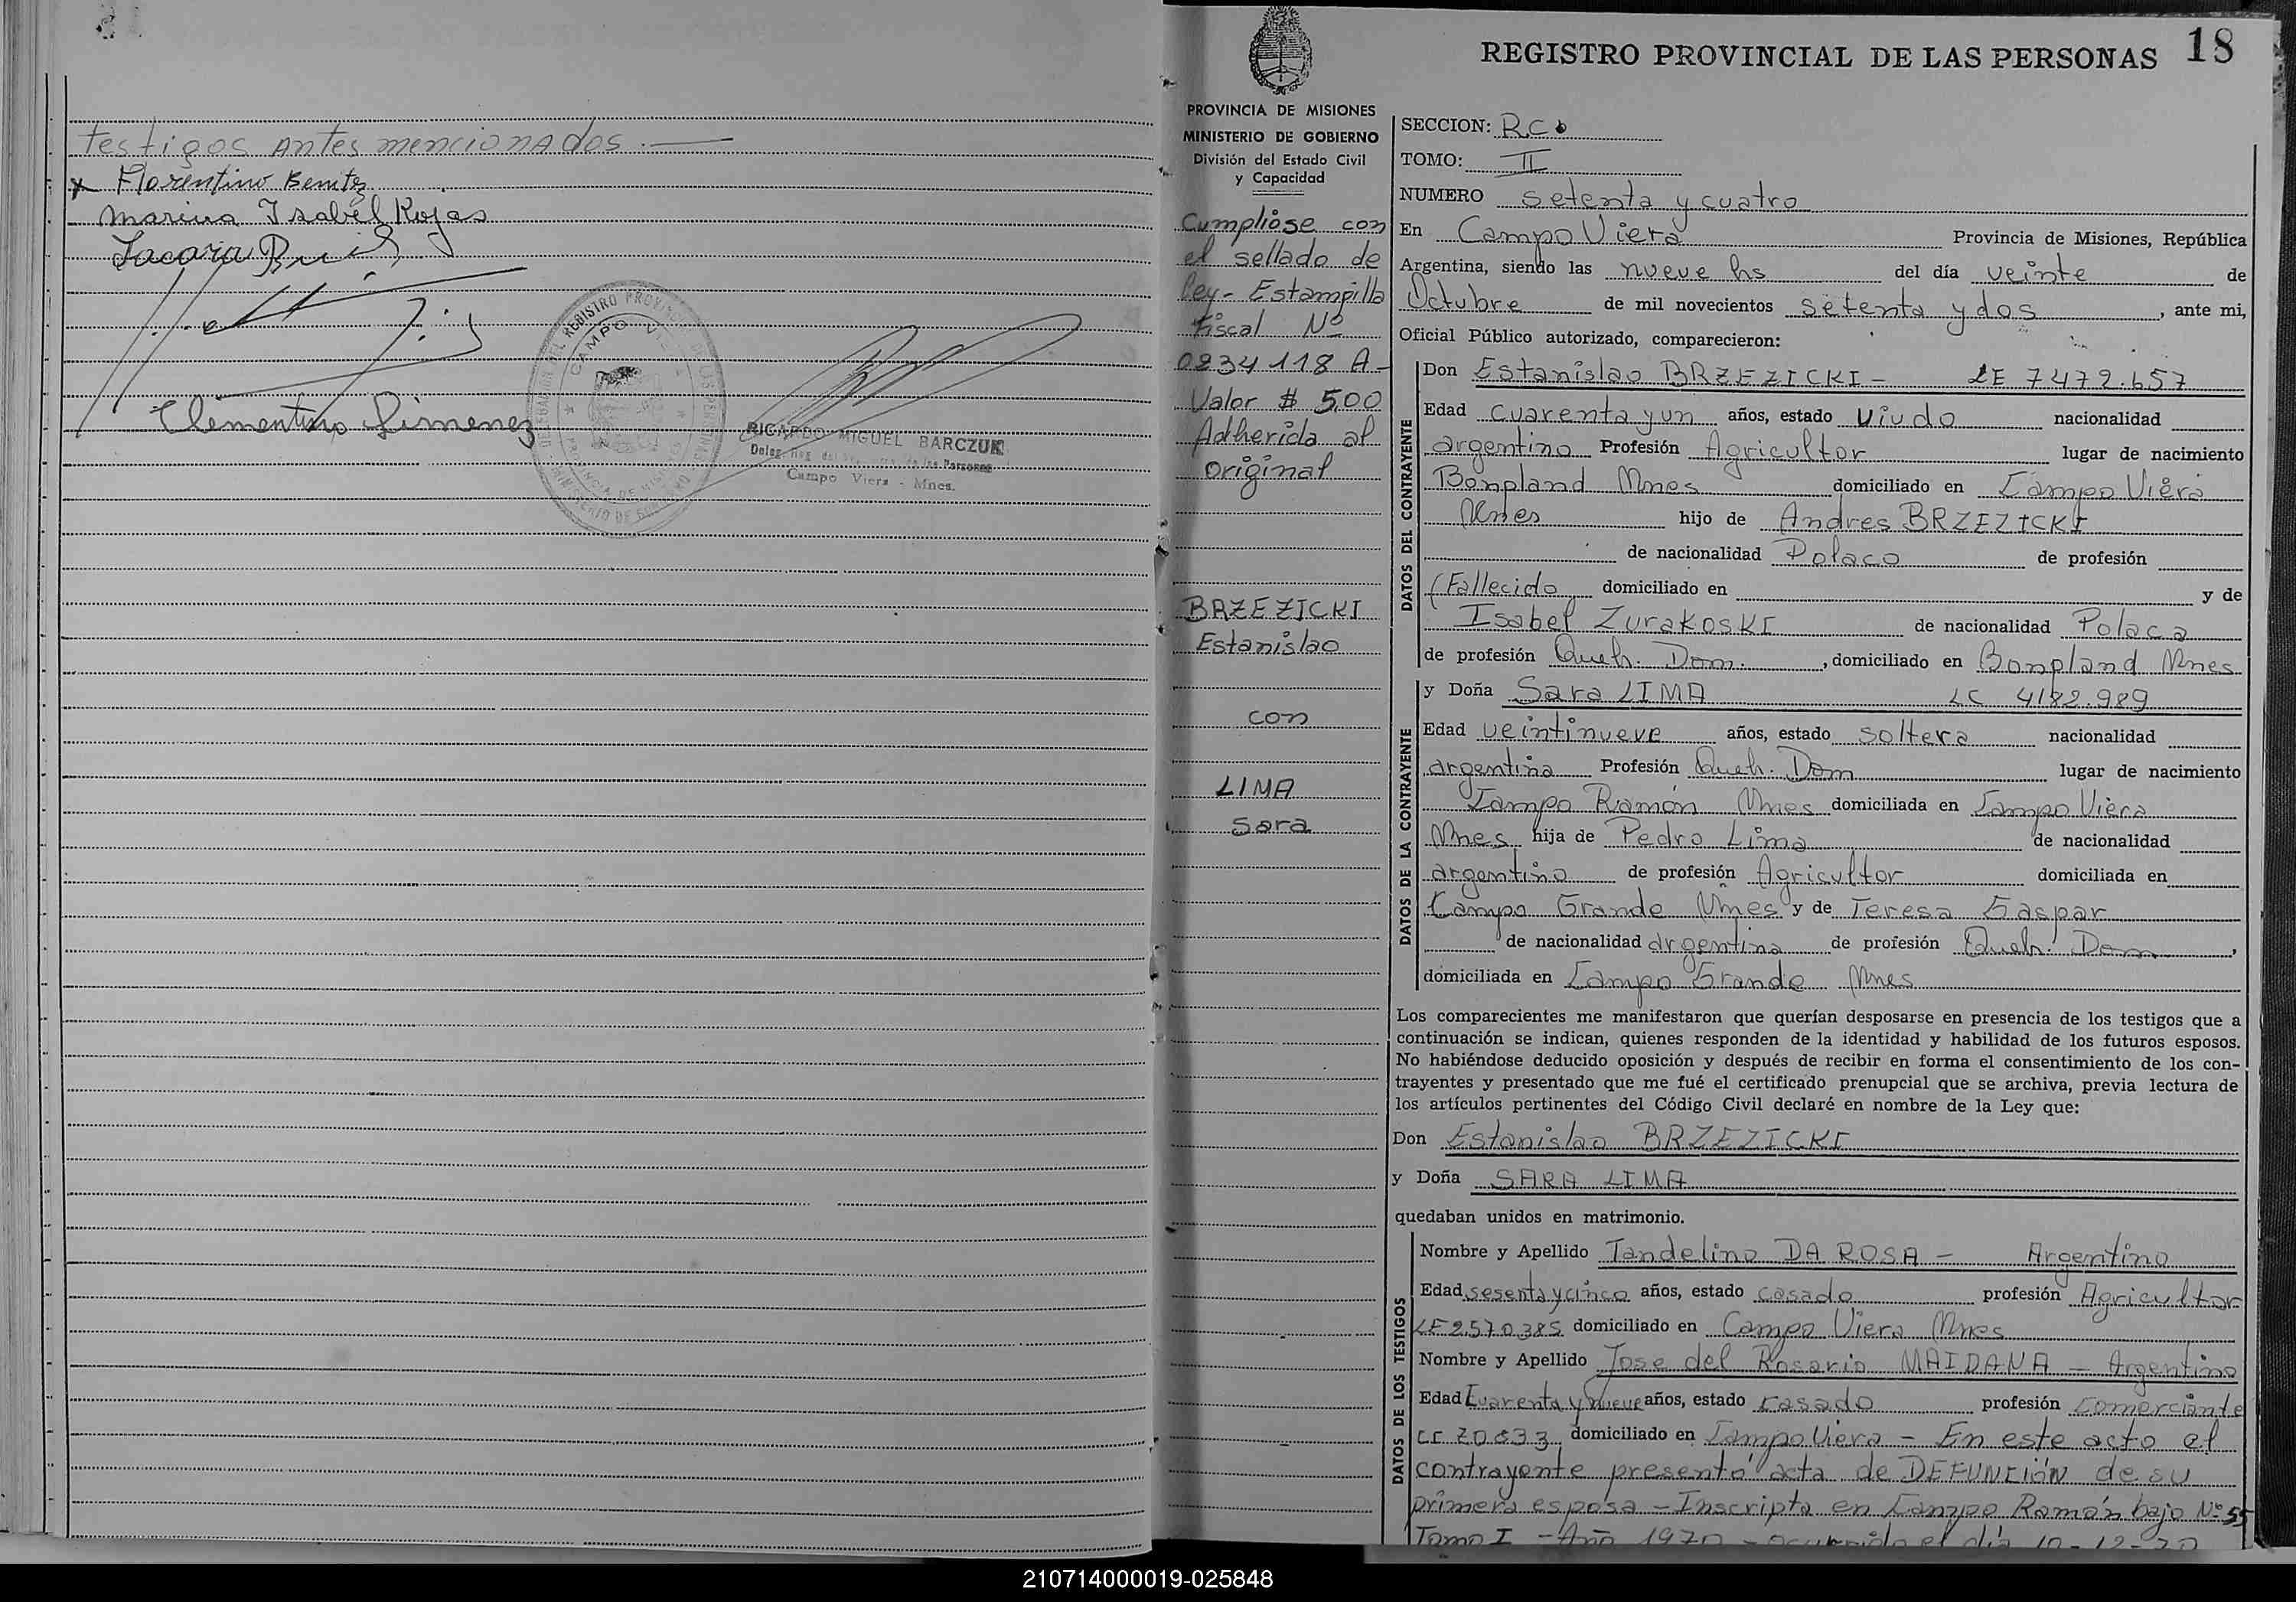 testigos antes mencionados.—
x Florentino Benitez
Marina Isabel Rojas
Clementino Jimenez
REGISTRO PROVINCIAL DE LAS PERSONAS
CAMPO VIERA
RICARDO MIGUEL BARCZUK
Campo Viera - Mnes.
PROVINCIA DE MISIONES
MINISTERIO DE GOBIERNO
División del Estado Civil
y Capacidad
Cumplióse con
el sellado de
ley - Estampilla
Fiscal Nº
0234118 A -
Valor $ 5,00
Adherida al
original
BRZEZICKI
Estanislao
con
LIMA
Sara
REGISTRO PROVINCIAL DE LAS PERSONAS 18
SECCION: R.C.
TOMO: II
NUMERO setenta y cuatro
En Campo Viera Provincia de Misiones, República
Argentina, siendo las nueve hs del día veinte de
Octubre de mil novecientos setenta y dos, ante mi,
Oficial Público autorizado, comparecieron:
DATOS DEL CONTRAYENTE
Don Estanislao BRZEZICKI - LE 7472.657
Edad cuarenta y un años, estado viudo nacionalidad
argentino Profesión Agricultor lugar de nacimiento
Bonpland Mnes domiciliado en Campo Viera
Mnes hijo de Andres BRZEZICKI
de nacionalidad Polaco de profesión
(Fallecido domiciliado en y de
Isabel ZURAKOSKI de nacionalidad Polaca
de profesión Queh. Dom., domiciliado en Bonpland Mnes
DATOS DE LA CONTRAYENTE
y Doña Sara LIMA LC 4182.989
Edad veintinueve años, estado soltera nacionalidad
argentina Profesión Queh. Dom lugar de nacimiento
Campo Ramón Mnes domiciliada en Campo Viera
Mnes hija de Pedro Lima de nacionalidad
argentino de profesión Agricultor domiciliada en
Campo Grande Mnes y de Teresa Gaspar
de nacionalidad argentina de profesión Queh. Dom,
domiciliada en Campo Grande Mnes
Los comparecientes me manifestaron que querían desposarse en presencia de los testigos que a
continuación se indican, quienes responden de la identidad y habilidad de los futuros esposos.
No habiéndose deducido oposición y después de recibir en forma el consentimiento de los con-
trayentes y presentado que me fué el certificado prenupcial que se archiva, previa lectura de
los artículos pertinentes del Código Civil declaré en nombre de la Ley que:
Don Estanislao BRZEZICKI
y Doña SARA LIMA
quedaban unidos en matrimonio.
DATOS DE LOS TESTIGOS
Nombre y Apellido Tandelino DA ROSA - Argentino
Edad sesenta y cinco años, estado casado profesión Agricultor
LE 2.570.385 domiciliado en Campo Viera Mnes
Nombre y Apellido Jose del Rosario MAIDANA - Argentino
Edad Cuarenta y nueve años, estado casado profesión Comerciante
domiciliado en Campo Viera - En este acto el
contrayente presentó acta de DEFUNCIÓN de su
primera esposa - Inscripta en Campo Ramón bajo Nº 55
Tomo I - Año 1970 - ocurrida el día 10-12-70
210714000019-025848